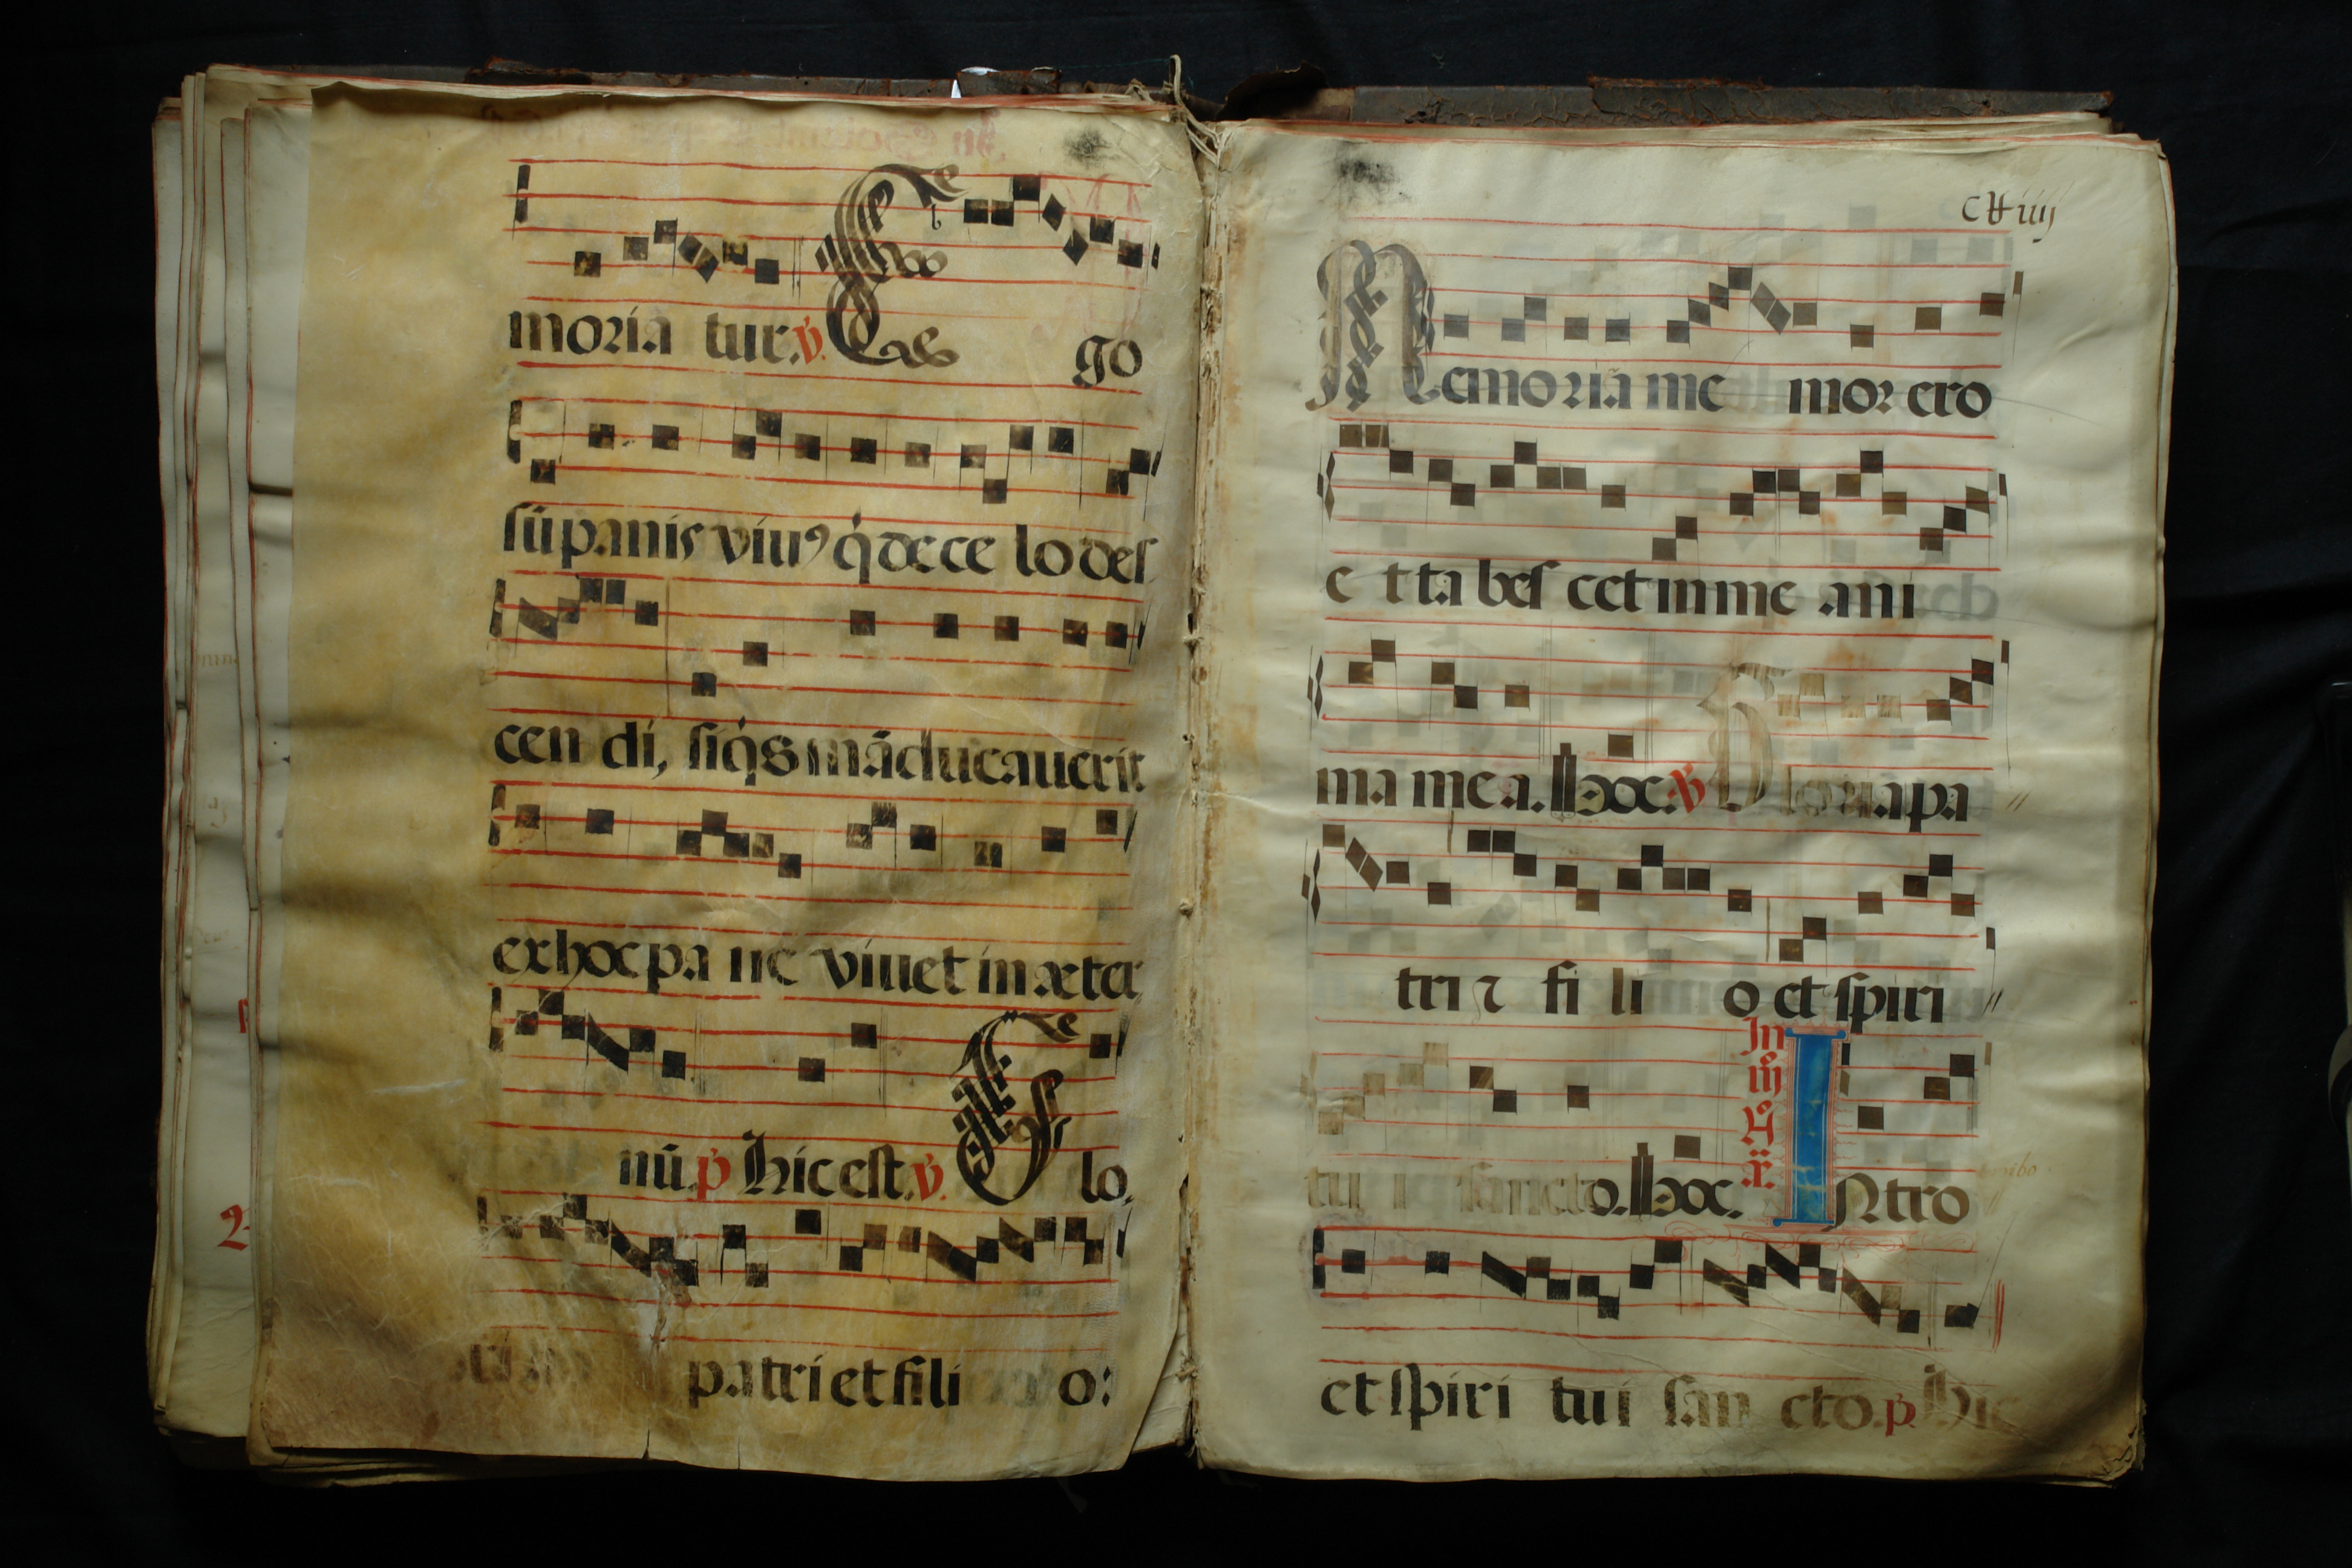 moriã tur. ꝟ. E go
sũ panis viuꝰ q̇ de ce lo des
cen di, si q̇s mãducauerit
ex hoc pa ne viuet in æter
nũ. p̃ hic est. ꝟ. G lo.
patri et fili o:
cxxiiij
Memoriã me mor ero
e t ta bes cet in me ani
ma me a. hoc. ꝟ. Gloria pa
tri ⁊ fi li o et spiri
tu i sancto. hoc. In iij Intro
et spiri tui san cto. p̃ hic